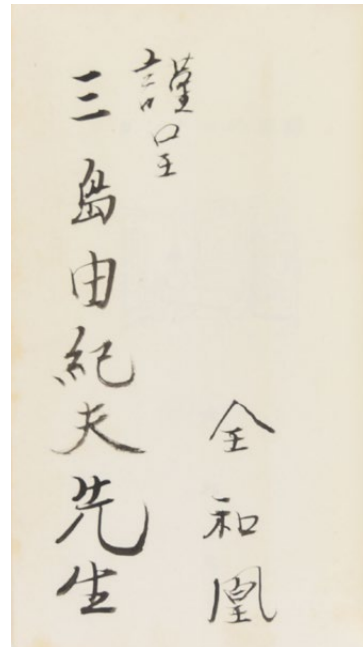 謹呈
三島由紀夫先生
全和凰